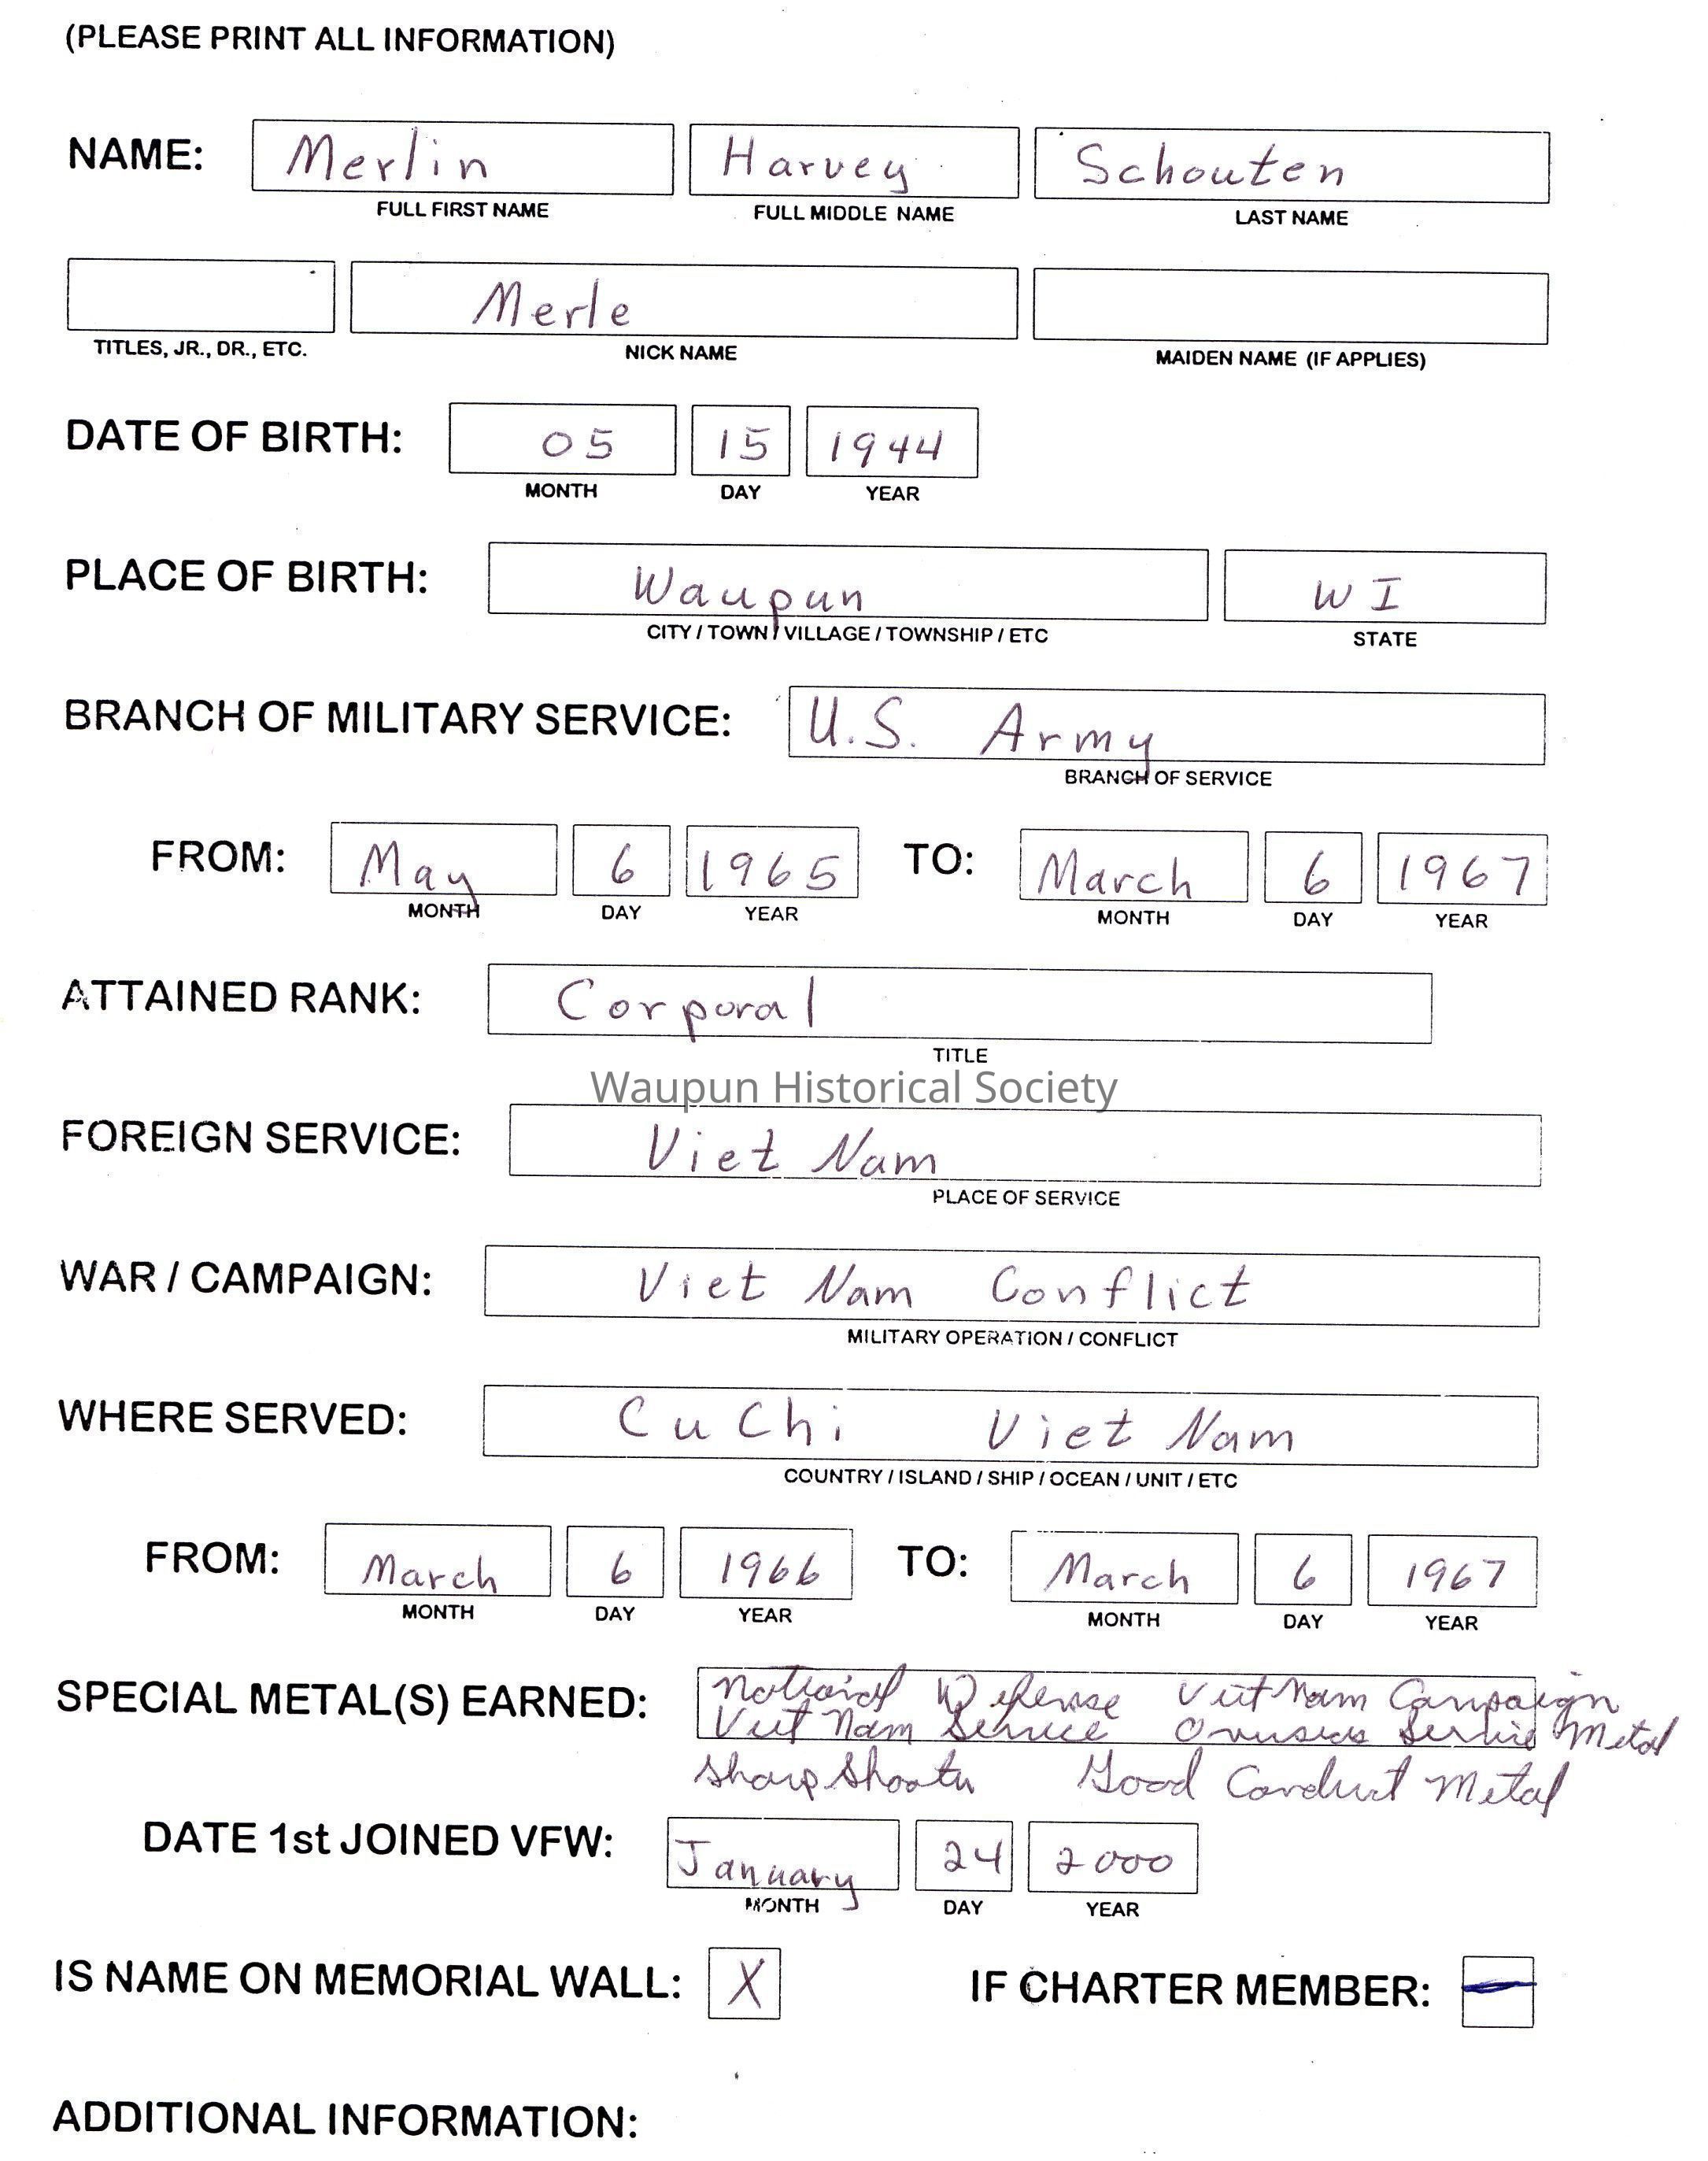 (PLEASE PRINT ALL INFORMATION)
NAME: Merlin Harvey Schouten
FULL FIRST NAME FULL MIDDLE NAME LAST NAME
Merle
TITLES, JR., DR., ETC. NICK NAME MAIDEN NAME (IF APPLIES)
DATE OF BIRTH: 05 15 1944
MONTH DAY YEAR
PLACE OF BIRTH: Waupun WI
CITY / TOWN / VILLAGE / TOWNSHIP / ETC STATE
BRANCH OF MILITARY SERVICE: U.S. Army
BRANCH OF SERVICE
FROM: May 6 1965 TO: March 6 1967
MONTH DAY YEAR MONTH DAY YEAR
ATTAINED RANK: Corporal
TITLE
Waupun Historical Society
FOREIGN SERVICE: Viet Nam
PLACE OF SERVICE
WAR / CAMPAIGN: Viet Nam Conflict
MILITARY OPERATION / CONFLICT
WHERE SERVED: Cu Chi Viet Nam
COUNTRY / ISLAND / SHIP / OCEAN / UNIT / ETC
FROM: March 6 1966 TO: March 6 1967
MONTH DAY YEAR MONTH DAY YEAR
SPECIAL METAL(S) EARNED: National Defense Viet Nam Campaign
Viet Nam Service Overseas Service Metal
Sharp Shooter Good Conduct Metal
DATE 1st JOINED VFW: January 24 2000
MONTH DAY YEAR
IS NAME ON MEMORIAL WALL: X IF CHARTER MEMBER: —
ADDITIONAL INFORMATION: